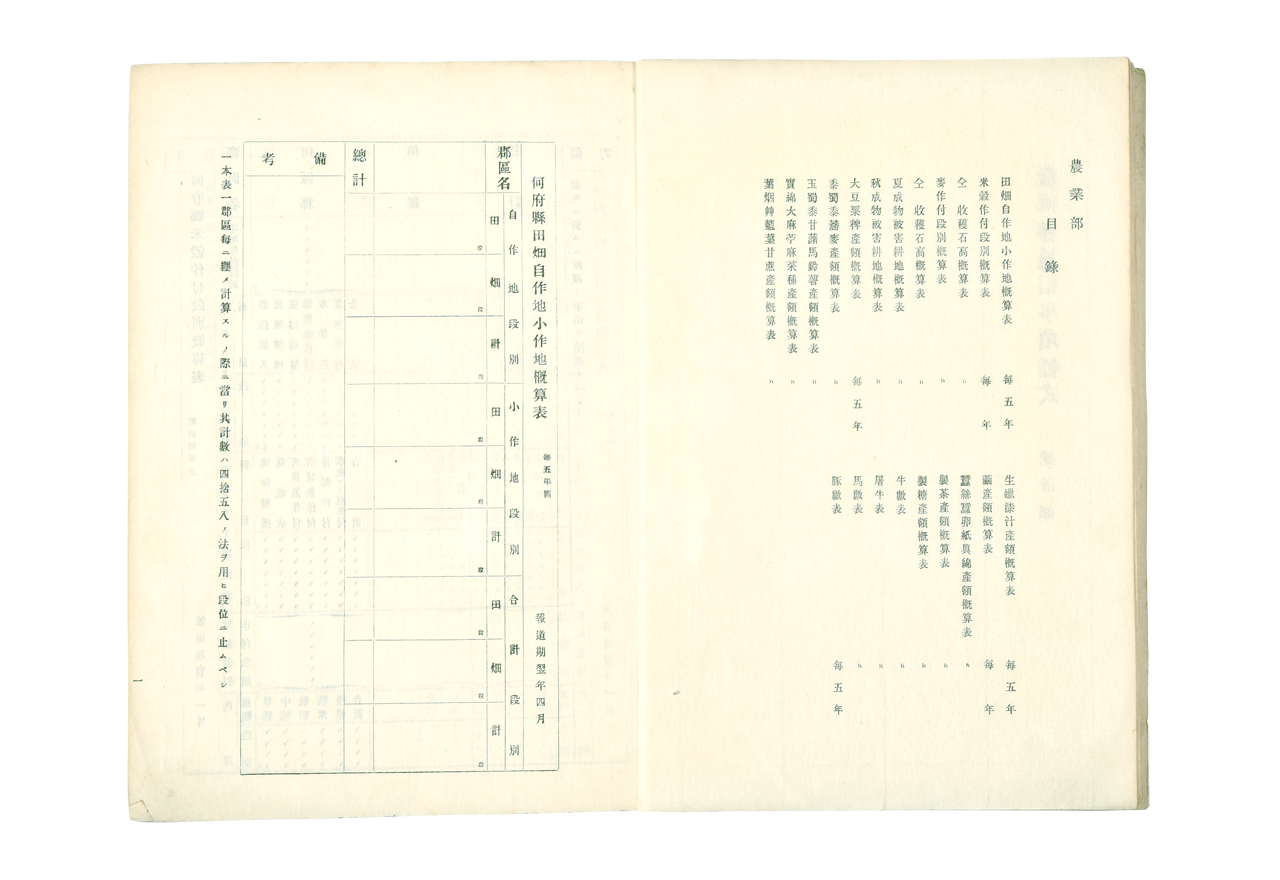 農業部
目錄
田畑自作地小作地槪算表 每五年
米穀作付段別槪算表 每年
仝 收穫石高槪算表 〃
麥作付段別槪算表 〃
仝 收穫石高槪算表 〃
夏成物被害耕地槪算表 〃
秋成物被害耕地槪算表 〃
大豆粟稗產額槪算表 每五年
黍蜀黍蕎麥產額槪算表 〃
玉蜀黍甘藷馬鈴薯產額槪算表 〃
實綿大麻苧麻菜種產額槪算表 〃
葉烟艸藍葉甘蔗產額槪算表 〃
生蠟漆汁產額槪算表 每五年
繭產額槪算表 每年
蠶絲蠶卵紙眞綿產額槪算表 〃
製茶產額槪算表 〃
製糖產額槪算表 〃
牛數表 〃
屠牛表 〃
馬數表 〃
豚數表 每五年
何府縣田畑自作地小作地槪算表 每五年調 報道期翌年四月
郡區名
自作地段別
田 段
畑 段
計 段
小作地段別
田 段
畑 段
計 段
合計段別
田 段
畑 段
計 段
總計
備考
一本表一郡區每ニ纒メ計算スルノ際ニ當リ其計數ハ四捨五入ノ法ヲ用ヒ段位ニ止ムベシ
一